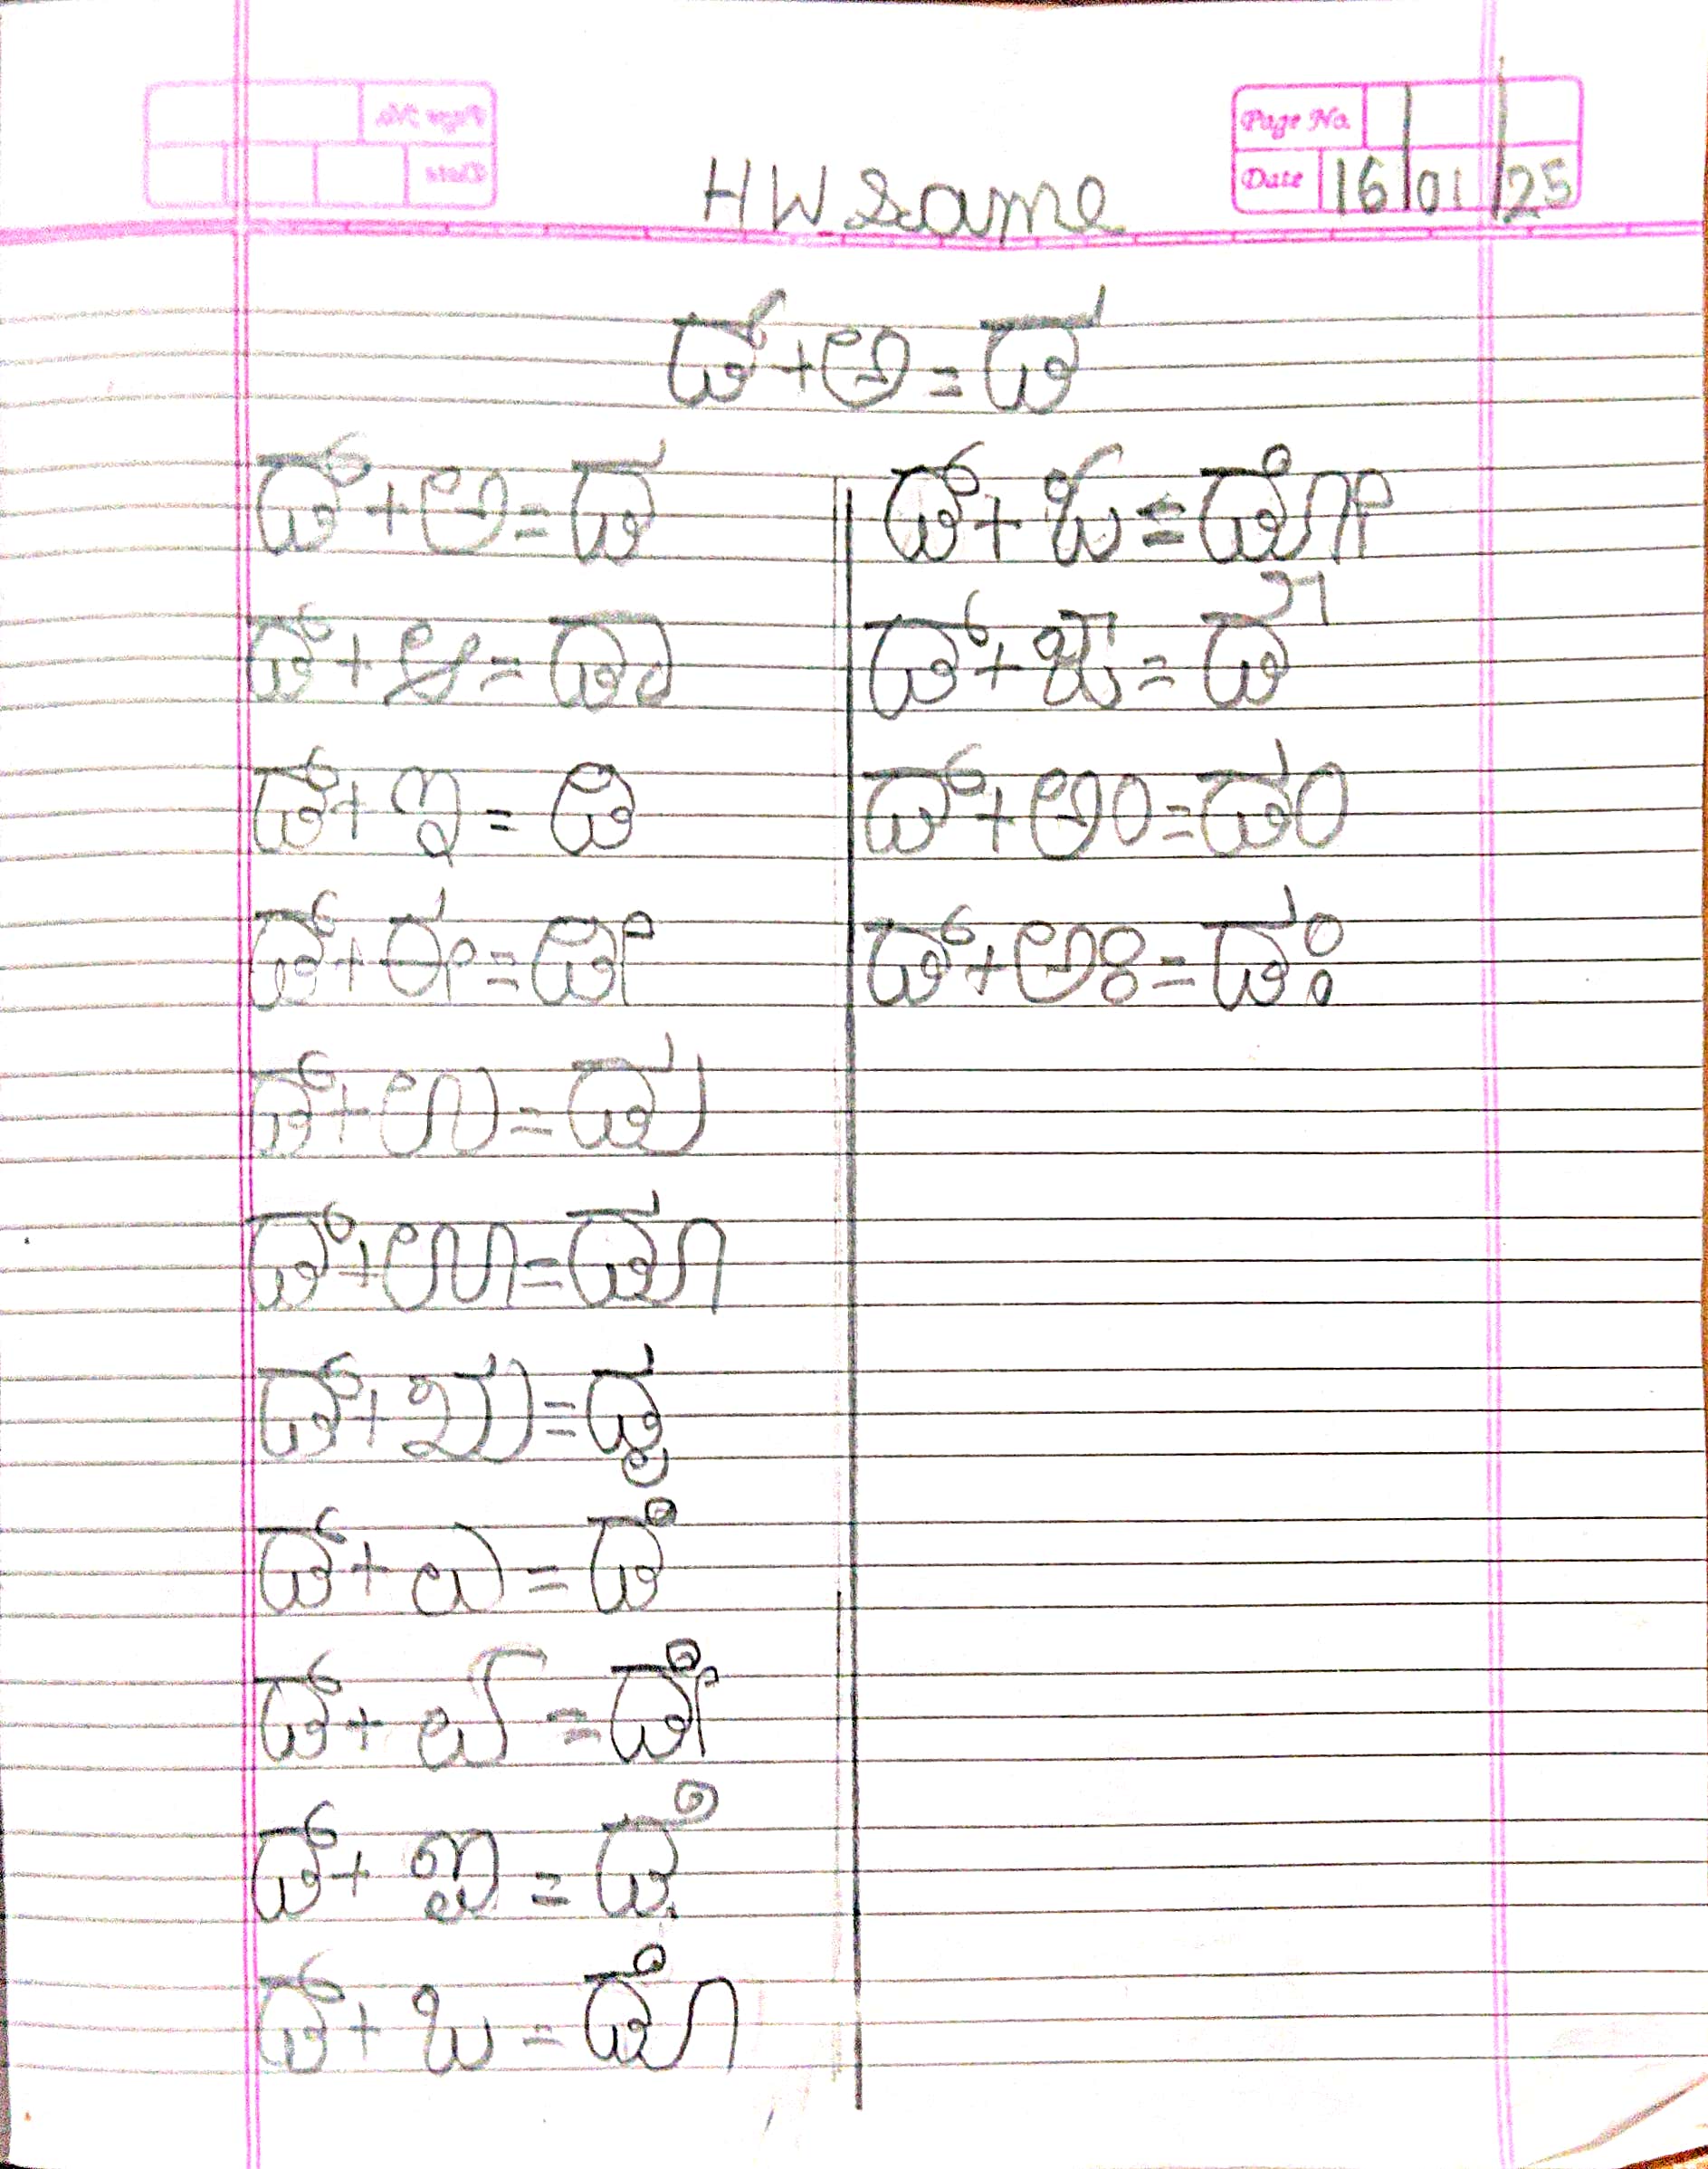 Page No.
HW same Date 16/01/25
ಡ್+ಅ=ಡ
ಡ್+ಅ=ಡ
ಡ್+ಆ=ಡಾ
ಡ್+ಇ=ಡಿ
ಡ್+ಈ=ಡೀ
ಡ್+ಉ=ಡು
ಡ್+ಊ=ಡೂ
ಡ್+ಋ=ಡೃ
ಡ್+ಎ=ಡೆ
ಡ್+ಏ=ಡೇ
ಡ್+ಐ=ಡೈ
ಡ್+ಒ=ಡೊ
ಡ್+ಓ=ಡೋ
ಡ್+ಔ=ಡೌ
ಡ್+ಅಂ=ಡಂ
ಡ್+ಅಃ=ಡಃ